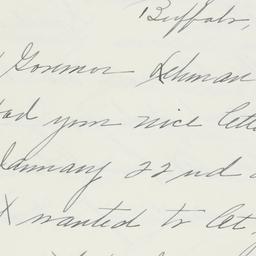 Buffalo,
Governor Lehman
had your nice lette
January 22nd a
I wanted to let